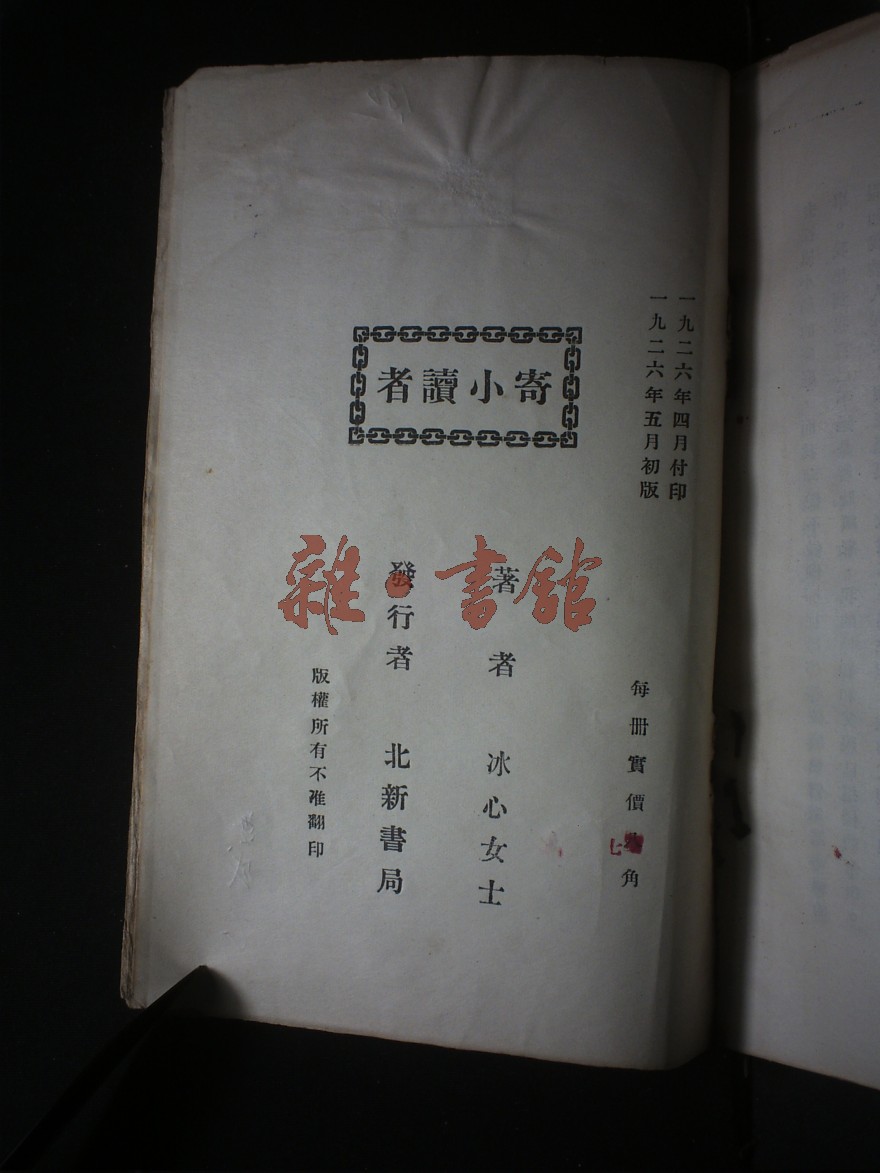 一九二六年四月付印
一九二六年五月初版
每冊實價
七
角
寄小讀者
著者 冰心女士
發行者 北新書局
版權所有不准翻印
雜·書館